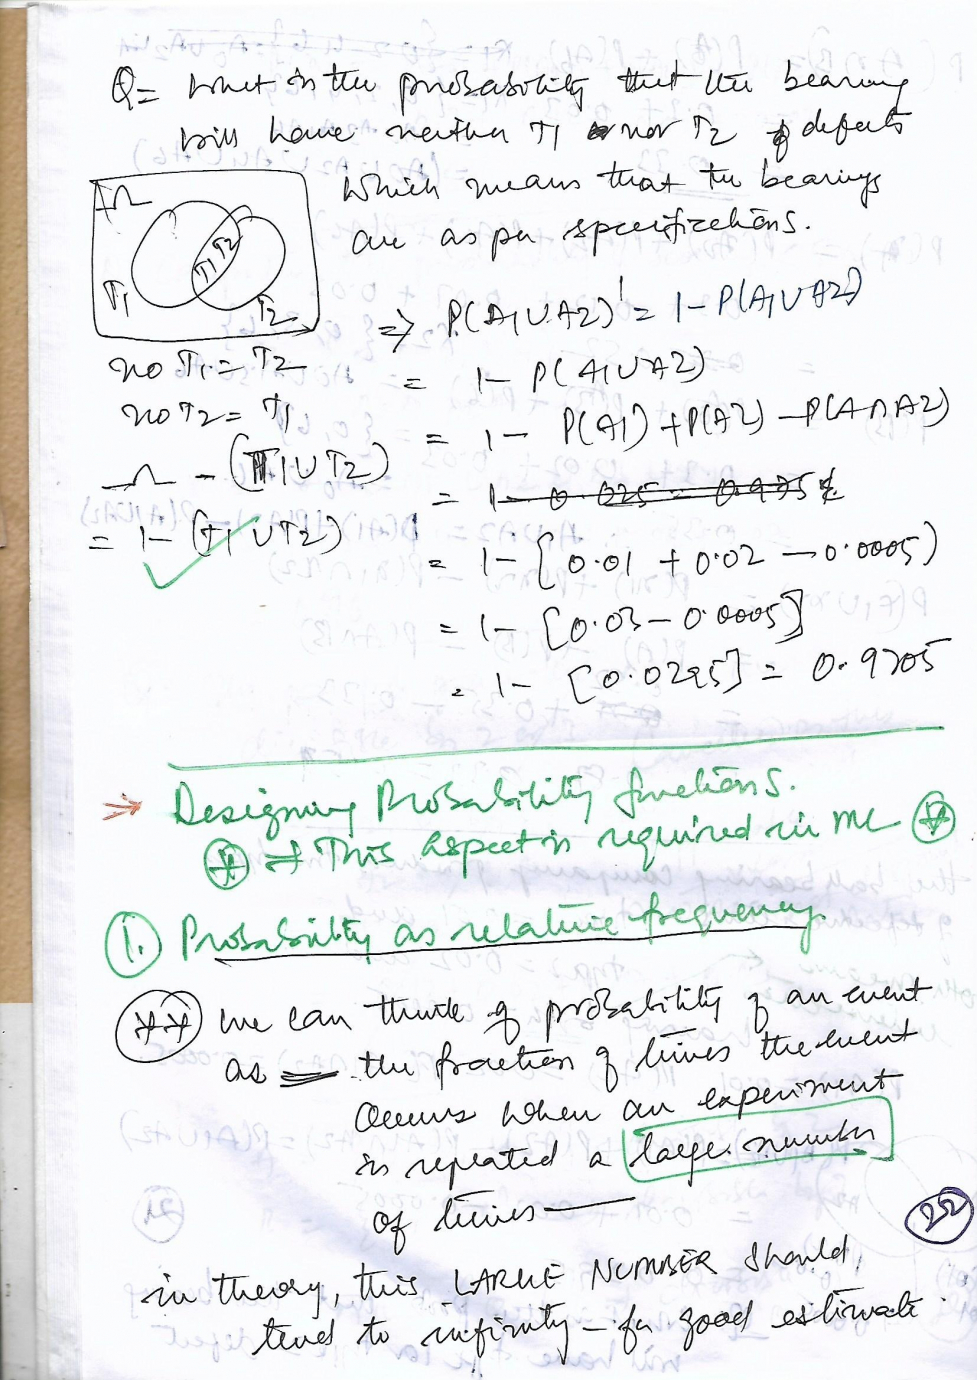 Q = What is the probability that the bearing
will have neither T1 nor T2 defects
which means that the bearings
are as per specifications.
Ω
T1
T1 T2
T2
=> P(A1 ∪ A2)' = 1 - P(A1 ∪ A2)
no T1 = T2
= 1 - P(A1 ∪ A2)
no T2 = T1
= 1 - P(A1) + P(A2) - P(A ∩ A2)
Ω - (T1 ∪ T2)
= 1 - 0.025 = 0.975
= 1 - (T1 ∪ T2)
= 1 - [0.01 + 0.02 - 0.0005)
= 1 - [0.03 - 0.0005]
= 1 - [0.0295] = 0.9705
Designing Probability functions.
* => This aspect is required in ML *
1. Probability as relative frequency
** we can think of probability of an event
as the fraction of times the event
occurs when an experiment
is repeated a large number
of times
22
in theory, this LARGE NUMBER should,
tend to infinity - for good estimate.